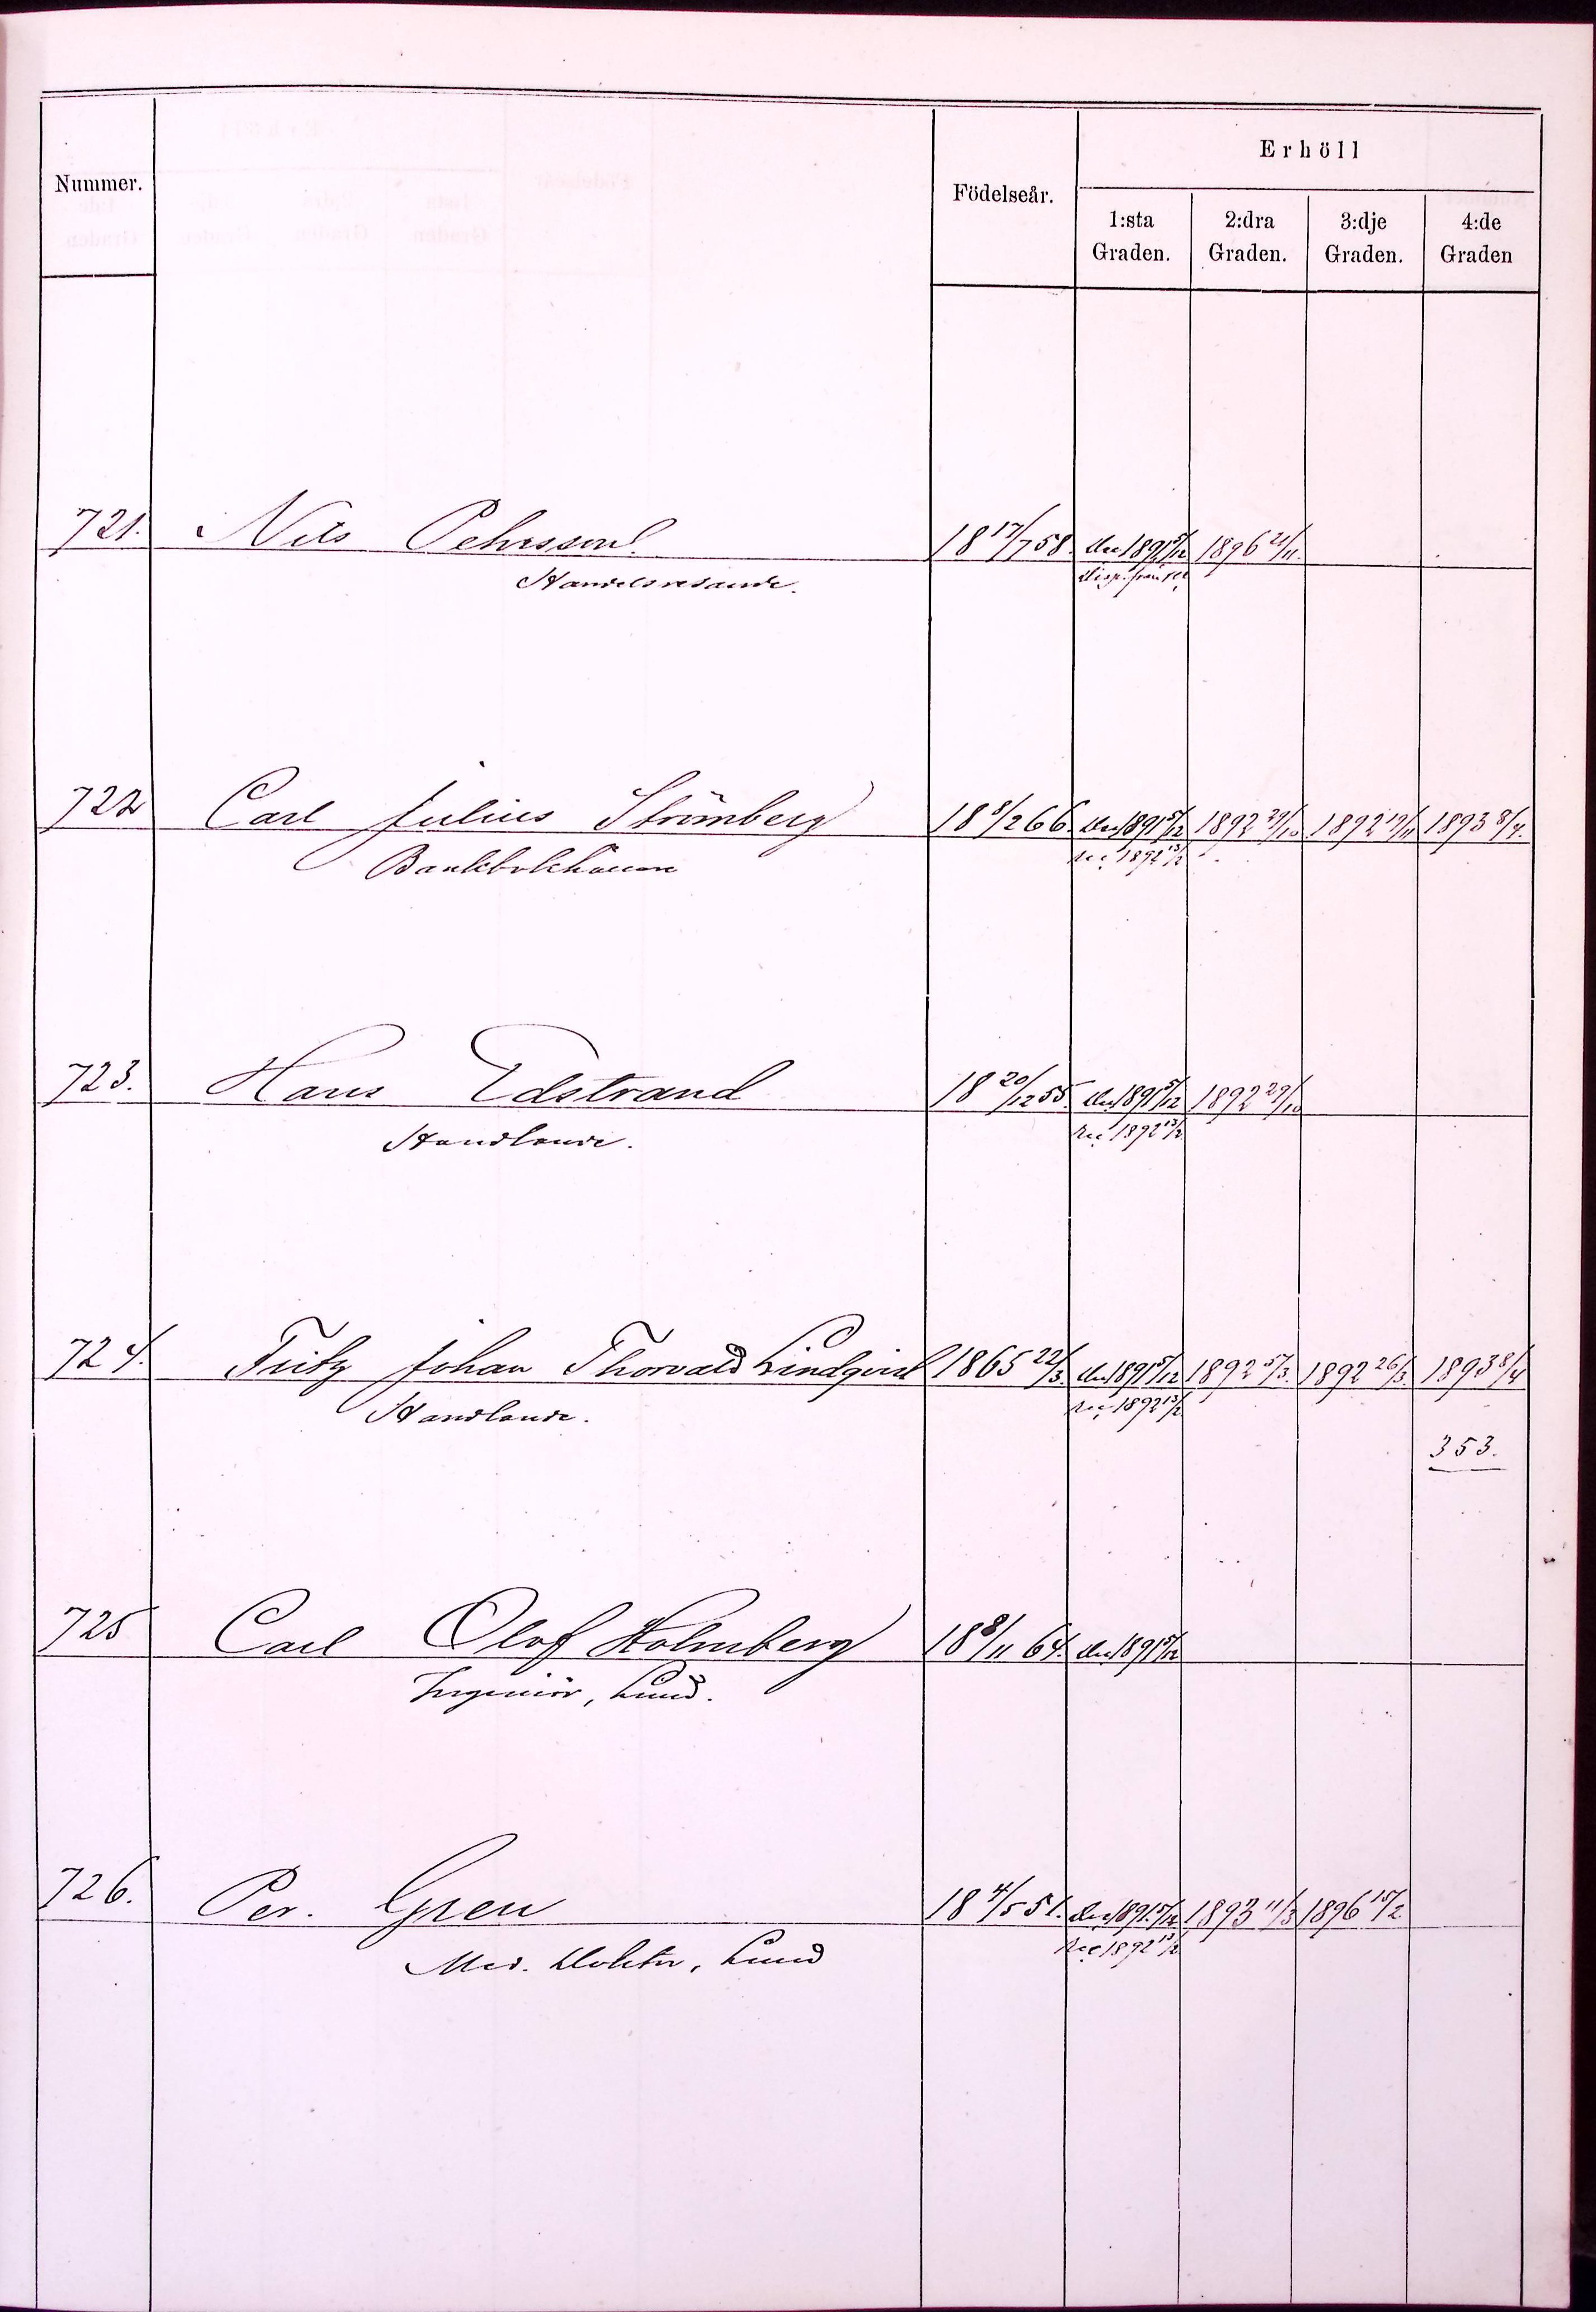 Erhöll
Nummer. Födelseår.
1:sta 2:dra 3:dje 4:de
Graden. Graden. Graden. Graden
721. Nils Pehrsson 18 17/7 58. 1891 5/12 1896 21/11.
Handelsresande. disp. från
722 Carl Julius Strömberg 18 8/2 66 1891 5/12 1892 29/10 1892 19/11 1893 8/4.
Bankbokhållare rec 1892 13/2
723. Hans Edstrand 18 20/12 55. 1891 5/12 1892 29/10
Handlande. rec 1892 13/2
724. Fritz Johan Thorvald Lindqvist 1865 22/3. 1891 5/12 1892 5/3. 1892 26/3. 1893 8/4
Handlande. rec 1892 13/2
353.
725 Carl Olof Holmberg 18 8/11 64. 1891 5/12
Ingeniör, Lund.
726. Per. Gren 18 4/5 51. 1891 5/12 1893 11/3 1896 15/2
Med. Doktor, Lund rec 1892 13/2